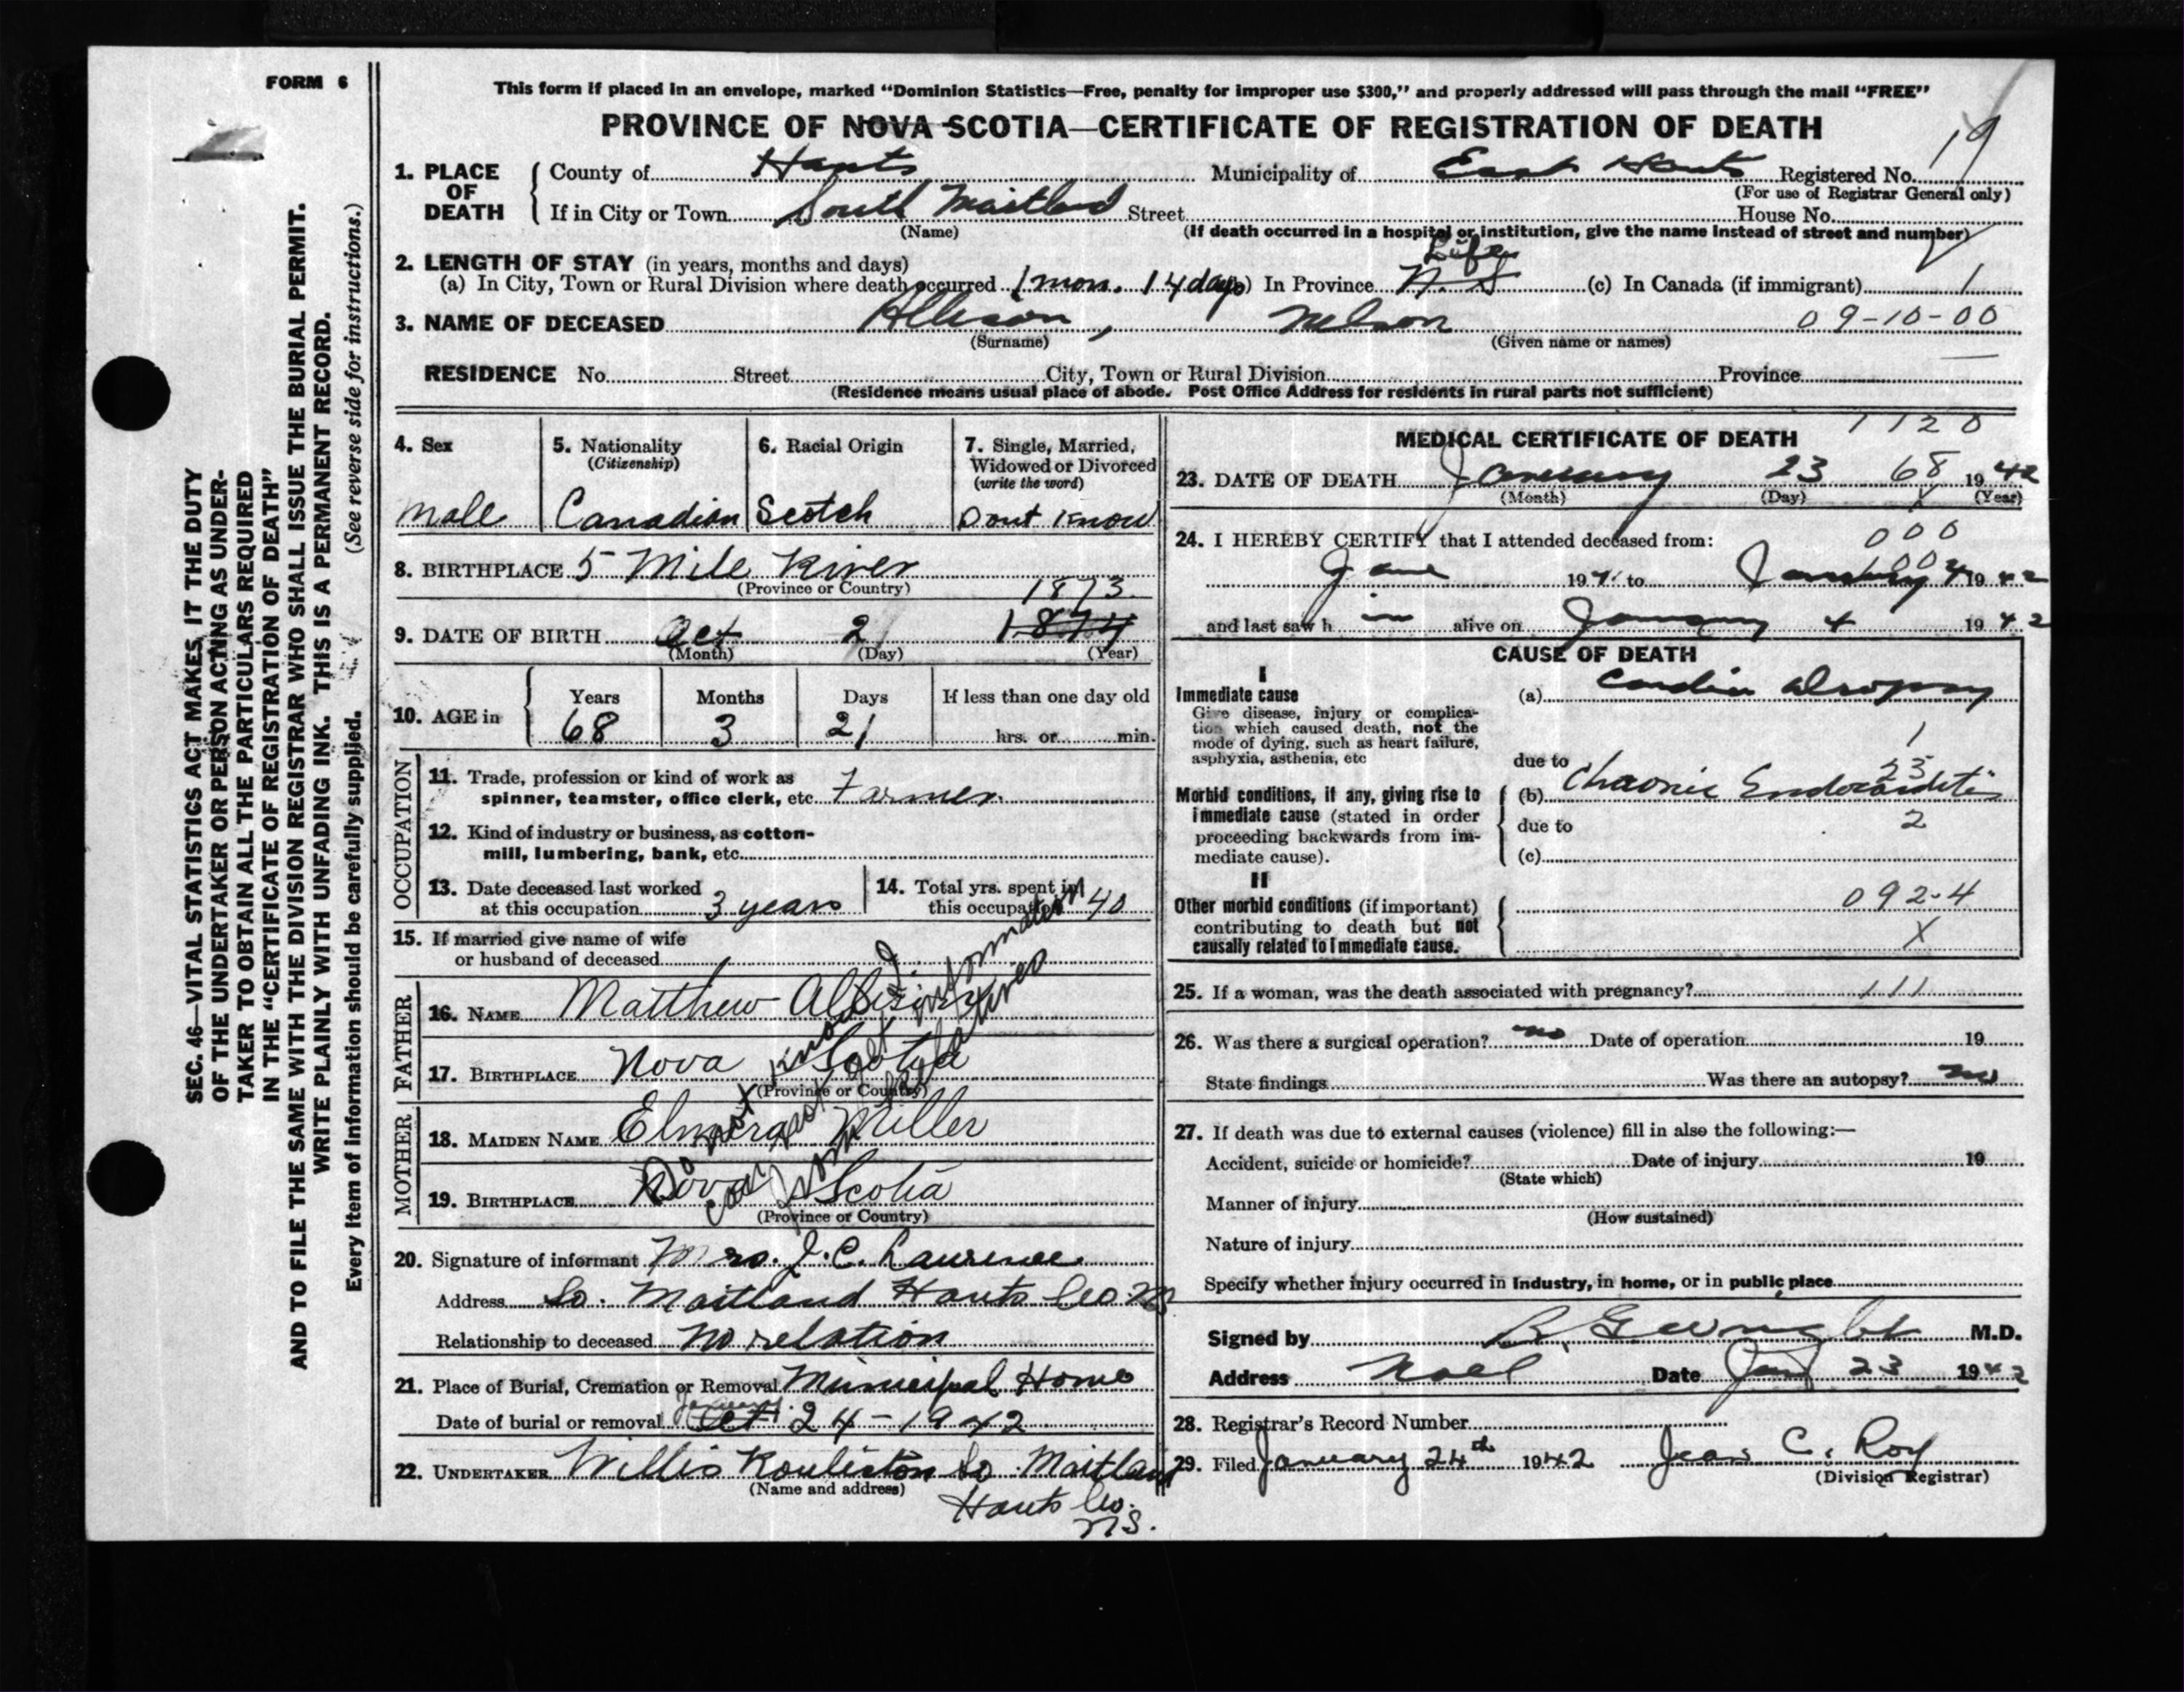 FORM 6
This form if placed in an envelope, marked "Dominion Statistics—Free, penalty for improper use $300," and properly addressed will pass through the mail "FREE"
PROVINCE OF NOVA SCOTIA—CERTIFICATE OF REGISTRATION OF DEATH
19
1. PLACE OF DEATH
County of Hants Municipality of East Hants Registered No.
(For use of Registrar General only)
If in City or Town South Maitland Street House No.
(Name) (If death occurred in a hospital or institution, give the name instead of street and number)
2. LENGTH OF STAY (in years, months and days)
Life
(a) In City, Town or Rural Division where death occurred 1 mon. 14 days) In Province N.S (c) In Canada (if immigrant) /
3. NAME OF DECEASED Allison, Nelson 09-10-00
(Surname) (Given name or names)
RESIDENCE No. Street City, Town or Rural Division Province
(Residence means usual place of abode. Post Office Address for residents in rural parts not sufficient)
4. Sex
male
5. Nationality
(Citizenship)
Canadian
6. Racial Origin
Scotch
7. Single, Married,
Widowed or Divorced
(write the word)
Dont Know
8. BIRTHPLACE 5 Mile River
(Province or Country)
1873
9. DATE OF BIRTH Oct 2 1874
(Month) (Day) (Year)
10. AGE in
Years Months Days If less than one day old
68 3 21 hrs. or min.
OCCUPATION
11. Trade, profession or kind of work as
spinner, teamster, office clerk, etc. Farmer
12. Kind of industry or business, as cotton-
mill, lumbering, bank, etc.
13. Date deceased last worked
at this occupation 3 years
14. Total yrs. spent in
this occupation 40
15. If married give name of wife
or husband of deceased
FATHER
16. NAME Matthew Allison
17. BIRTHPLACE Nova Scotia
(Province or Country)
MOTHER
18. MAIDEN NAME Elmira Miller
19. BIRTHPLACE Nova Scotia
(Province or Country)
Do not know
could not get information
from relatives
20. Signature of informant Mrs. J. C. Laurence
Address So. Maitland Hants Co. NS
Relationship to deceased No relation
21. Place of Burial, Cremation or Removal Municipal Home
January
Date of burial or removal Oct 24-1942
22. UNDERTAKER Willis Rouliston So. Maitland
(Name and address)
Hants Co.
NS.
1120
MEDICAL CERTIFICATE OF DEATH
23. DATE OF DEATH January 23 68 1942
(Month) (Day) (Year)
24. I HEREBY CERTIFY that I attended deceased from:
000
100
Jan 1941 to January 4 1942
and last saw h im alive on January 4 1942
CAUSE OF DEATH
I
Immediate cause
Give disease, injury or complica-
tion which caused death, not the
mode of dying, such as heart failure,
asphyxia, asthenia, etc
(a) Cardiac dropsy
1
due to
23
Morbid conditions, if any, giving rise to
immediate cause (stated in order
proceeding backwards from im-
mediate cause).
(b) Chronic Endocarditis
due to
2
(c)
II
Other morbid conditions (if important)
contributing to death but not
causally related to immediate cause.
092-4
X
25. If a woman, was the death associated with pregnancy? 111
26. Was there a surgical operation? no Date of operation 19
State findings Was there an autopsy? no
27. If death was due to external causes (violence) fill in also the following:—
Accident, suicide or homicide? Date of injury 19
(State which)
Manner of injury
(How sustained)
Nature of injury
Specify whether injury occurred in Industry, in home, or in public place
Signed by R. G Wright M.D.
Address Noel Date Jan 23 1942
28. Registrar's Record Number
29. Filed January 24th 1942 Jean C. Roy
(Division Registrar)
SEC. 46—VITAL STATISTICS ACT MAKES IT THE DUTY
OF THE UNDERTAKER OR PERSON ACTING AS UNDER-
TAKER TO OBTAIN ALL THE PARTICULARS REQUIRED
IN THE "CERTIFICATE OF REGISTRATION OF DEATH"
AND TO FILE THE SAME WITH THE DIVISION REGISTRAR WHO SHALL ISSUE THE BURIAL PERMIT.
WRITE PLAINLY WITH UNFADING INK. THIS IS A PERMANENT RECORD.
Every item of information should be carefully supplied. (See reverse side for instructions.)